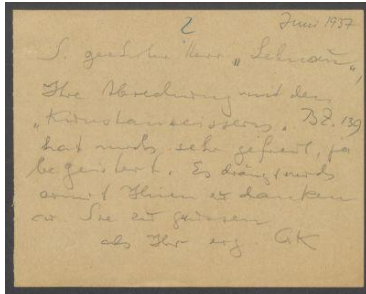 2
Juni 1937
S. geehrter Herr „Lehnau",
Ihre Abrechnung mit den
„Kunstanweisern", BZ. 139
hat mich sehr gefreut, ja
begeistert. Es drängt mich
somit Ihnen zu danken
Sie zu grüssen
als Ihr erg. GK